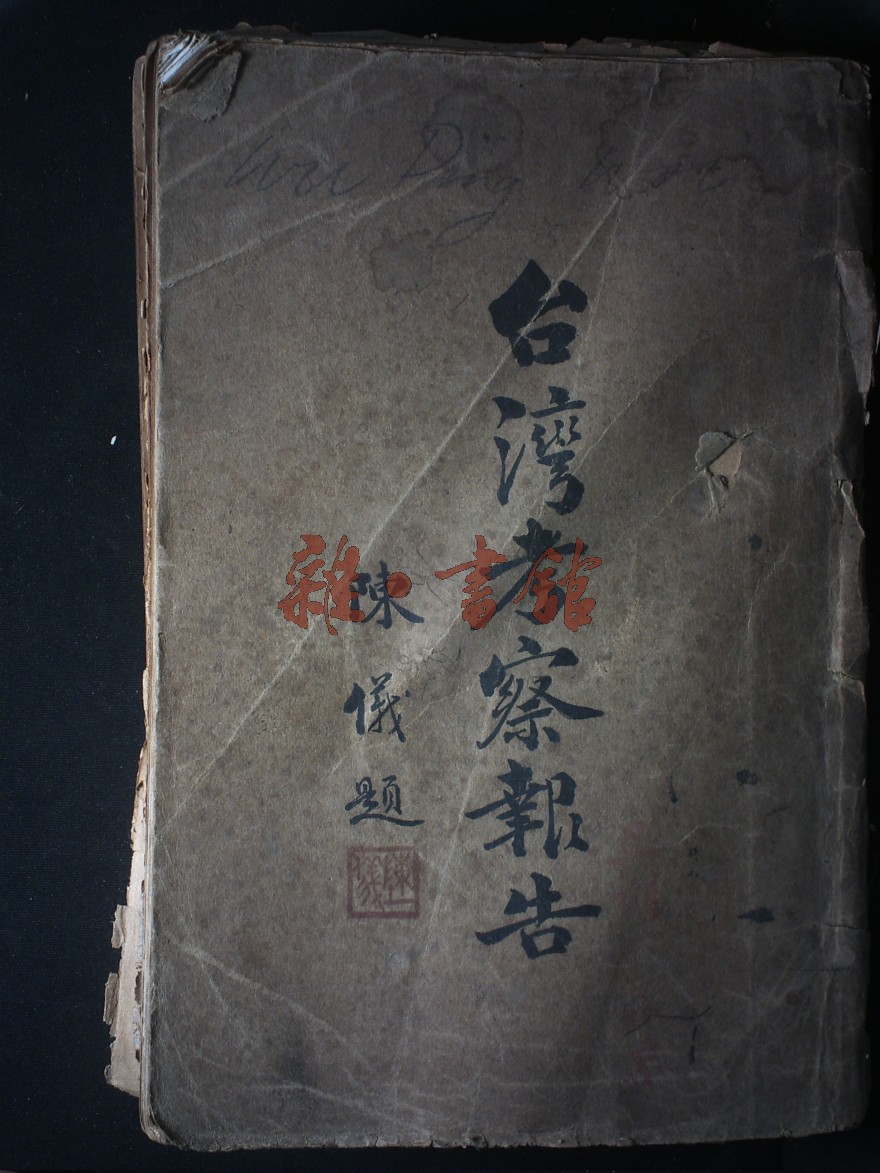 台灣考察報告
陳儀題
雜·書館